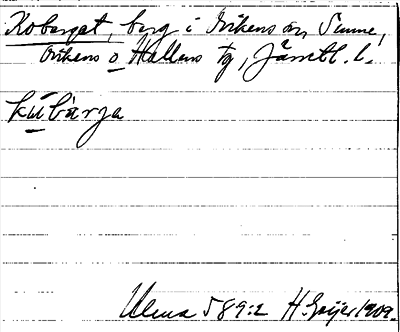 Koberget, berg i Ovikens sn, Sunne,
Ovikens o Hallens tg, Jämtl. l.
kúbàrja
Ulma 589:2 H. Geijer 1909.